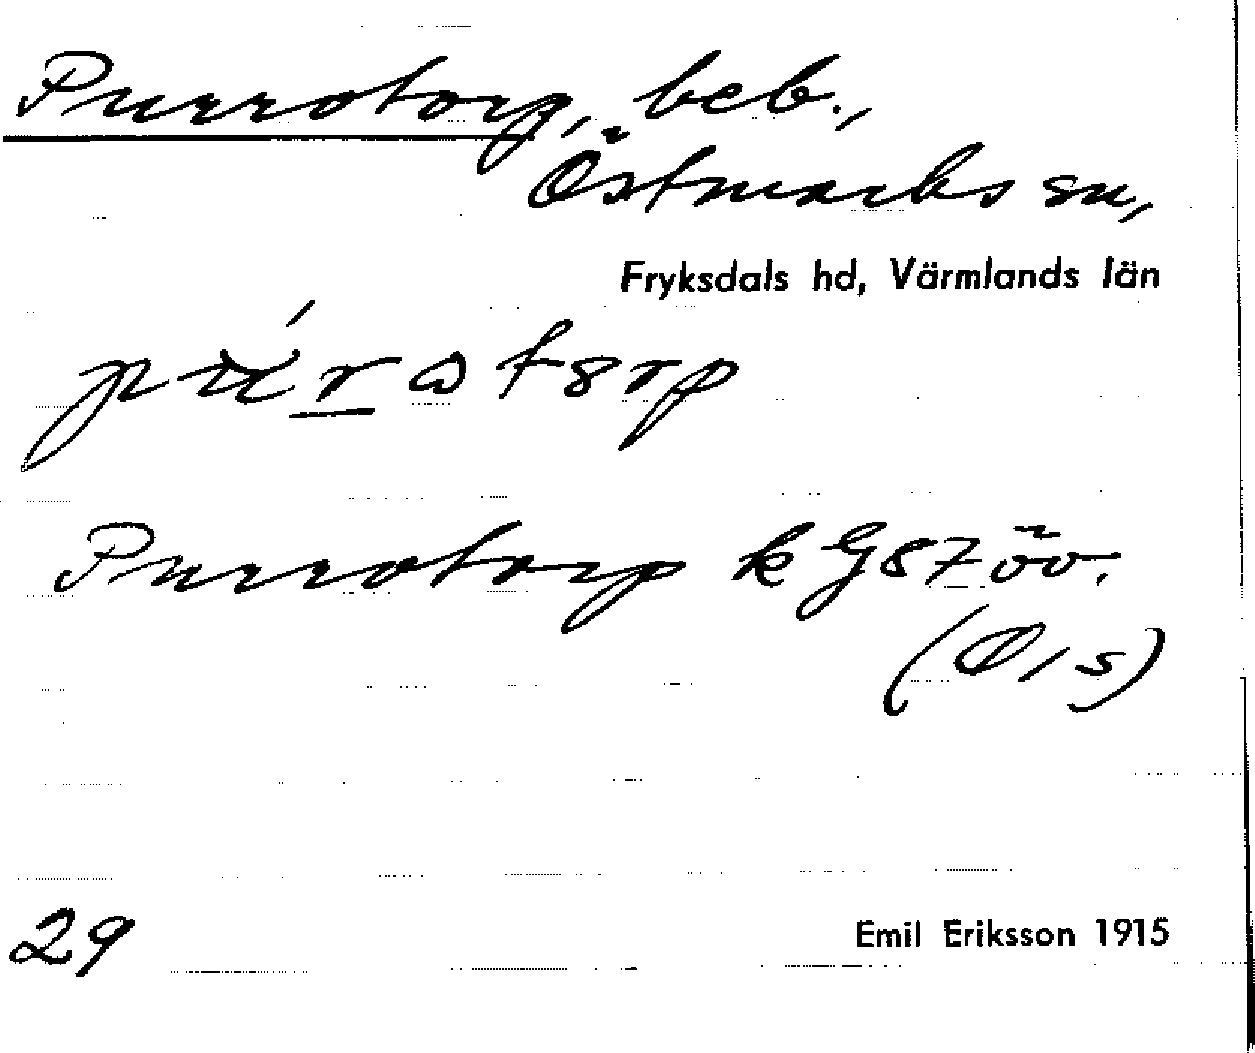 Purrotorp, beb.,
Östmarks sn,
Fryksdals hd, Värmlands län
Purrotorp k G87 öv.
29
Emil Eriksson 1915